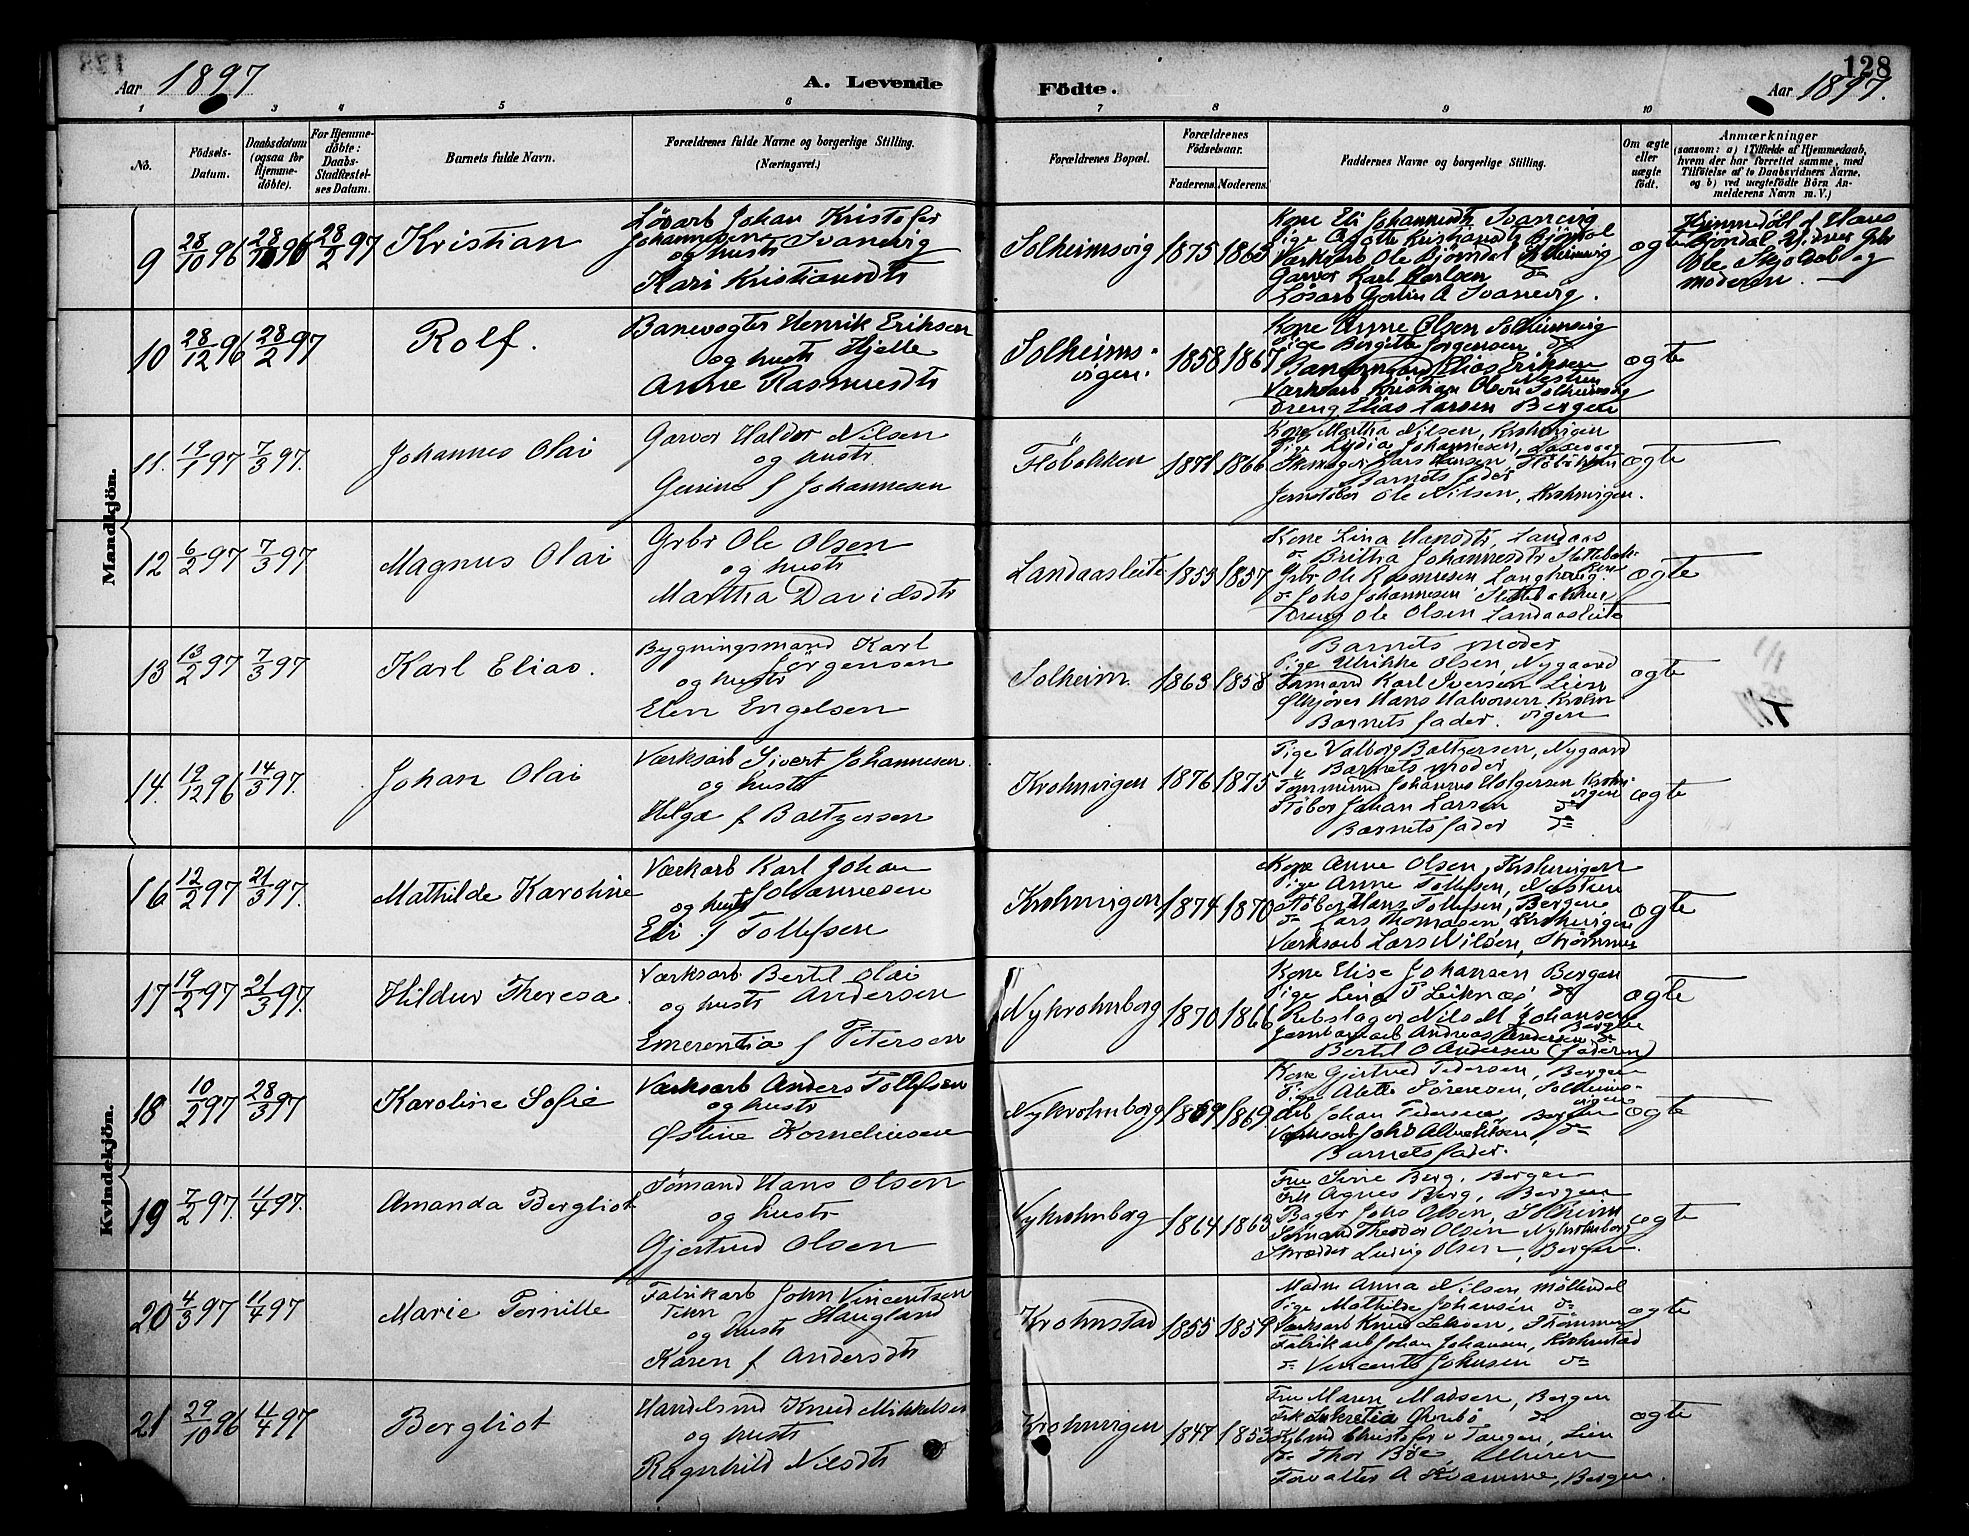 128
Aar 1897 A. Levende Födte. Aar 1897.
1 3 4 5 6 7 8 9 10
No. Födsels-Datum. Daabsdatum (ogsaa for Hjemmedöbte). For Hjemmedöbte: Daabs-Stadfæstelses Datum. Barnets fulde Navn. Forældrenes fulde Navne og borgerlige Stilling. (Næringsvei.) Forældrenes Bopæl. Forældrenes Födselsaar. Faderens. Moderens. Faddernes Navne og borgerlige Stilling. Om ægte eller uægte födt. Anmærkninger (saasom: a) i Tilfælde af Hjemmedaab, hvem der har forrettet samme, med Tilföielse af to Daabsvidners Navne, og b) ved uægtefödte Börn Anmelderens Navn m. V.)
Mandkjön.
9 28/10 96 28/10 96 28/2 97 Kristian
Lösarb Johan Kristofer
Johannesen Svanevig
og hustr
Kari Kristiansdtr
Solheimsvig 1875 1865
Kone Eli Johannesdtr Svanevig
Pige Agate Kristiansdtr Björndal
Værksarb Ole Björndal Solheimsvig
Garver Karl Karlsen do
Lösarb A Svanevig.
ægte
Hjemmedöbt af Hans
Björndal
Ole og
moderen.
10 28/12 96 28/2 97 Rolf.
Banevogter Henrik Eriksen
og hustr Hjelle
Anne Rasmusdtr
Solheimsvigen. 1858 1867
Kone Anne Olsen Solheimsvig
Pige Bergitte Jörgensen do
Elias Eriksen
Nestun
Værksarb Kristian Olsen Solheimsvig
Dreng Elias Larsen Bergen
ægte
11. 19/1 97 7/3 97. Johannes Olai
Garver Haldor Nilsen
og hustr
Gurine f Johannesen
Flöbakken 1871 1866
Kone Martha Nilsen, Krohnvigen
Pige Lydia Johannesen, Laksevaag
Skomager Lars Hansen, Flöbakken
Barnets fader
Jernstöber Ole Nilsen, Krohnvigen.
ægte
12 6/2 97 7/3 97 Magnus Olai
Grbr Ole Olsen
og hustr
Martha Davidsdtr
Landaasleite 1855 1857
Kone Lina Hansdtr, Landaas
do Britha Johannesdtr Slettebakken
Grbr Ole Rasmusen Langhaug.
do Johs Johannesen Slettebakken
Dreng Ole Olsen Landaasleite
ægte
13 13/2 97 7/3 97 Karl Elias.
Bygningsmand Karl
Jörgensen
og hustr
Elen Engelsen
Solheim 1863 1858
Barnets moder
Pige Ulrikke Olsen, Nygaard
Formand Karl Iversen Lien
Hans Halvorsen Krohnvigen
Barnets fader.
ægte
14. 19/12 96 14/3 97. Johan Olai
Værksarb Sivert Johannesen
og hustr
Helga f Baltzersen
Krohnvigen 1876 1875
Pige Valborg Baltzersen, Nygaard
Barnets moder
Tömmermd Johannes Holgersen Krohnvigen
Stöber Johan Larsen do
Barnets fader do
ægte
Kvindekjön.
16 12/2 97 21/3 97. Mathilde Karoline
Værkarb Karl Johan
og hustr Johannesen
Eli f Tollefsen
Krohnvigen 1874 1870
Kone Anne Olsen, Krohnvigen
Pige Anne Tollefsen, Nestun
Stöber Hans Tollefsen, Bergen
do Lars Thomasen, Krohnvigen
Værksarb Lars Nilsen, Strömmen
ægte
17 19/2 97 21/3 97. Hildur Theresa.
Værksarb Bertel Olai
og hustr Andersen
Emerentia f Petersen
Nykrohnborg 1870 1866
Kone Elise Johansen Bergen
Pige Lina P Leiknæs do
Rebslager Nils M Johansen
Bergen
Andreas Andersen do
Bertel O Andersen (faderen)
ægte
18 10/2 97 28/3 97 Karoline Sofie
Værksarb Anders Tollefsen
og hustr
Östine Korneliusen
Nykrohnborg 1869 1869
Kone Gjertrud Pedersen, Bergen
Pige Alette Sörensen, Solheimsvigen
Arb Johan Pedersen, Bergen
Værksarb Johs Albrektsen, do
Barnets fader.
ægte
19 7/2 97. 11/4 97. Amanda Bergliot
Sömand Hans Olsen
og hustr
Gjertrud Olsen
Nykrohnborg 1864 1863
Fru Sine Berg, Bergen
Frk Agnes Berg, Bergen
Bager Johs Olsen, Solheim
Sömand Theodor Olsen Nykrohnborg
Skrædder Ludvig Olsen, Bergen.
ægte
20 4/3 97 11/4 97 Marie Pernille
Fabrikarb John Vincentsen
Finn Haugland
og hustr
Karen f Andersdtr
Krohnstad 1855 1859
Madm Anna Nilsen Möllendal
Pige Mathilde Johansen do
Værksarb Knud Larsen, Strömmen
Fabrikarb Johan Johansen, Krohnstad
do Vincents Johnsen do
ægte
21 29/10 96 11/4 97 Bergliot
Handelsmd Knud Mikkelsen
og hustr
Ragnhild Nilsdtr
Krohnvigen 1847 1853
Fru Maren Madsen, Bergen
Frk Lukretia Övrebö do
Christofer v Tangen, Lien
do Thor Böe,
Forvalter A Kvamme, Bergen.
ægte